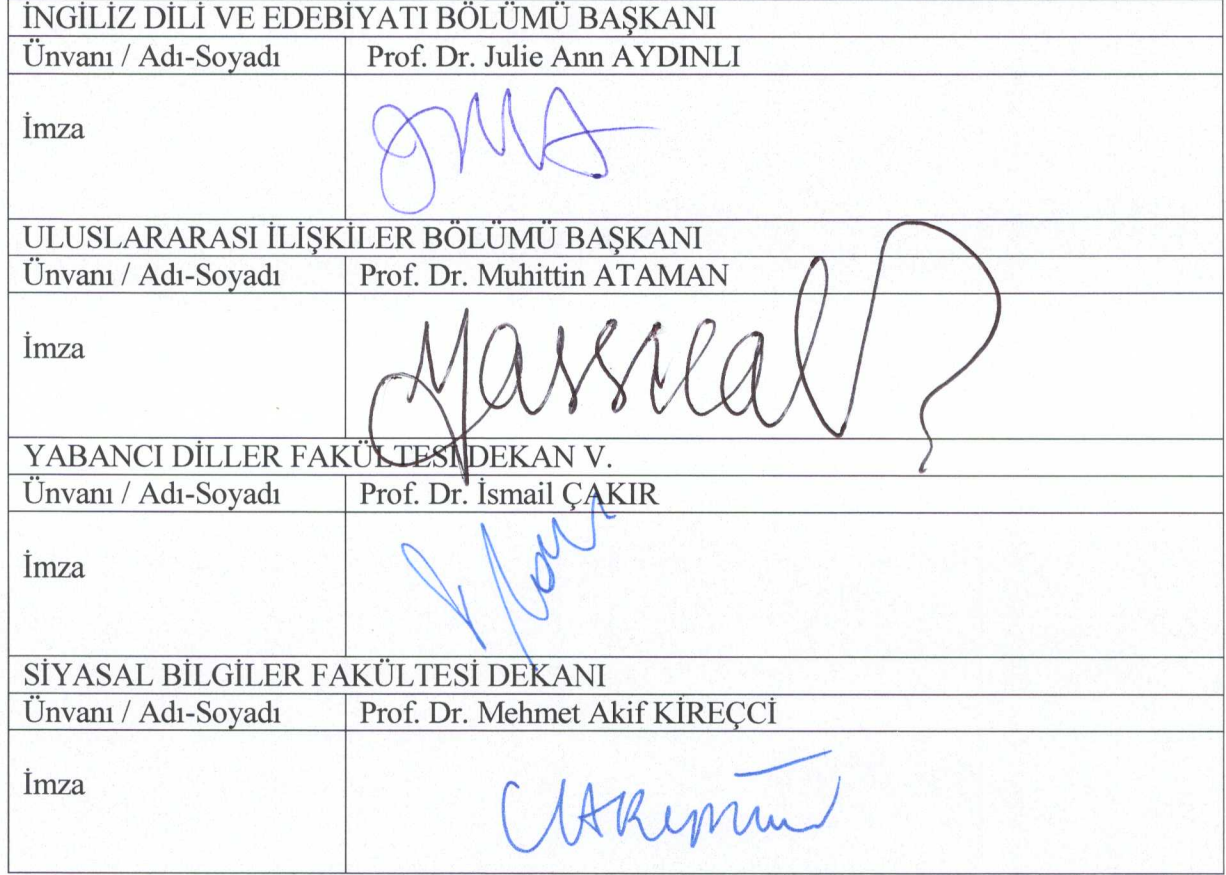 İNGİLİZ DİLİ VE EDEBİYATI BÖLÜMÜ BAŞKANI
Ünvanı / Adı-Soyadı Prof. Dr. Julie Ann AYDINLI
İmza
ULUSLARARASI İLİŞKİLER BÖLÜMÜ BAŞKANI
Ünvanı / Adı-Soyadı Prof. Dr. Muhittin ATAMAN
İmza
YABANCI DİLLER FAKÜLTESİ DEKAN V.
Ünvanı / Adı-Soyadı Prof. Dr. İsmail ÇAKIR
İmza
SİYASAL BİLGİLER FAKÜLTESİ DEKANI
Ünvanı / Adı-Soyadı Prof. Dr. Mehmet Akif KİREÇCİ
İmza